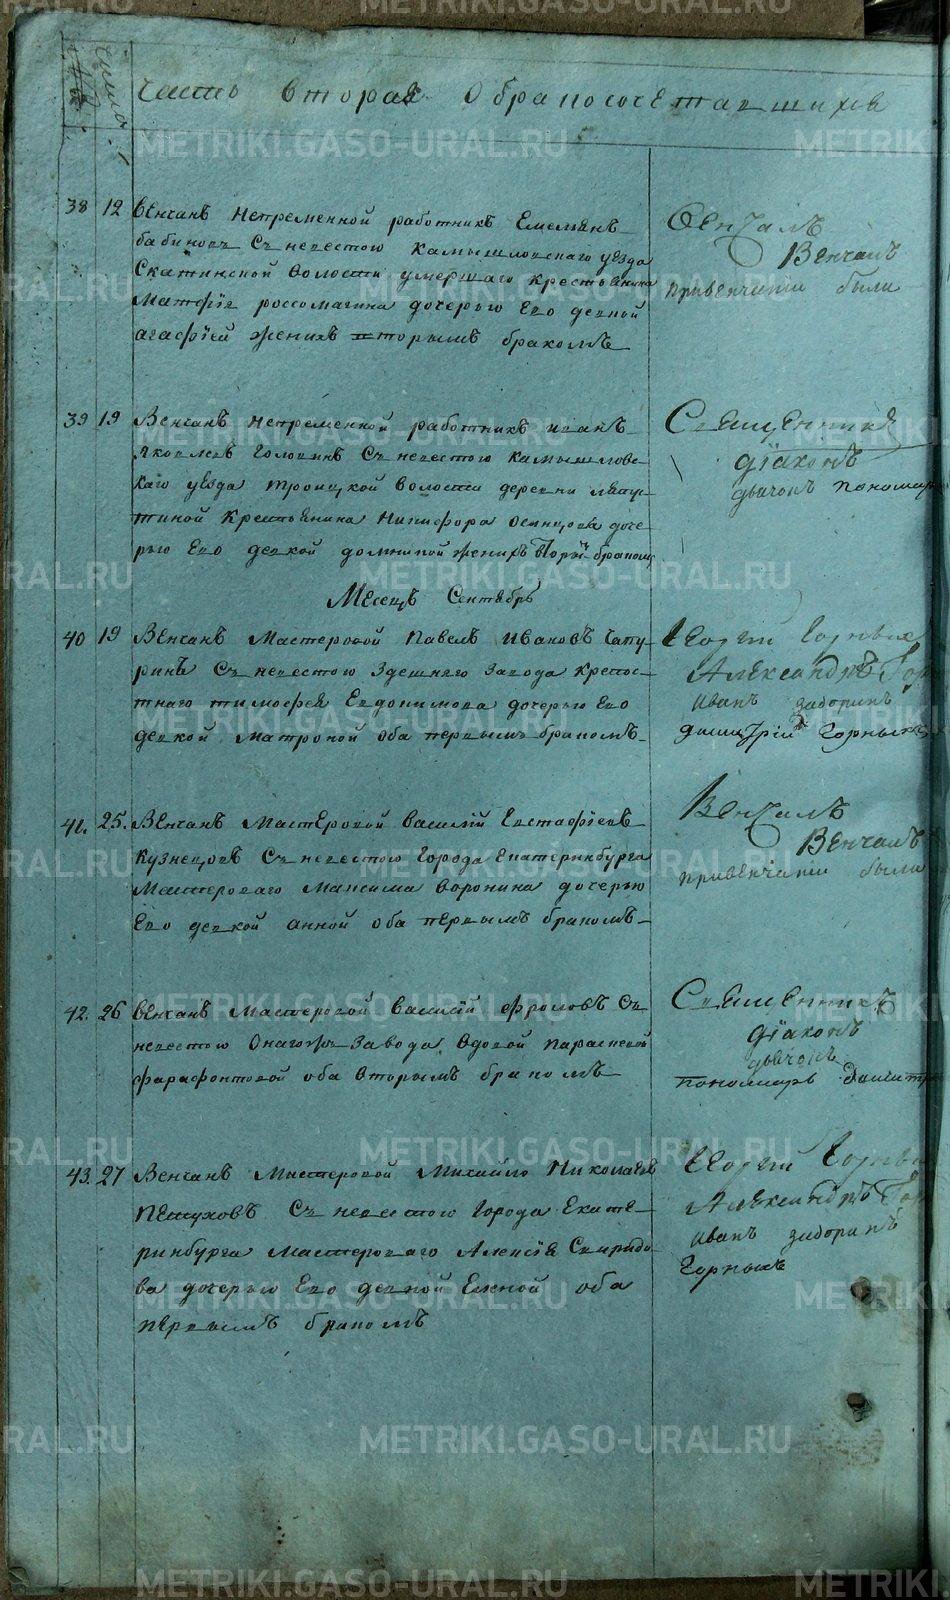 Число
Часть вторая О бракосочетавшихся
38 12 Венчанъ непременной работникъ Емельянъ
бабиновъ Съ невестою Камышловскаго уезда
Скатинской волости умершаго крестьянина
Матфія россомагина дочерью Его девкой
агафіей жених вторымъ бракомъ
Венчалъ
Венчалъ
при венчаніи были
39 19 Венчанъ непременной работникъ иванъ
яковлевъ Головинъ Съ невестою камышловс-
каго уезда троицкой волости деревни
Крестьянина Никифора доче-
рью Его девкой домникой женихъ вторый бракомъ
Священникъ
діаконъ
дьячокъ пономарь
Месецъ Сентябрь
40 19 Венчанъ Мастеровой Павелъ Ивановъ Чапу-
ринъ Съ невестою Здешняго Завода Крепос-
тнаго тимофея Евдокимова дочерью Его
девкой Матроной оба первымъ бракомъ
Георгій Горныхъ
Александръ Гор
иванъ задоринъ
димитрій Горныхъ
41. 25. Венчанъ Мастеровой василій Евстафіевъ
Кузнецовъ Съ невестою Города Екатеринбурга
Мастероваго Максима воронина дочерью
Его девкой анной оба первымъ бракомъ
Венчалъ
Венчалъ
при венчаніи были
42. 26 венчанъ Мастеровой василій фроловъ Съ
невестою Онагожъ Завода вдовой парасковей
фарафонтовой оба вторымъ бракомъ
Священникъ
діаконъ
дьячокъ
пономарь Димитр
43. 27 Венчанъ Мастеровой Михайло Николаевъ
Петуховъ Съ невестою Города Екате-
ринбурга Мастероваго Алексія Свиридо-
ва дочерью Его девкой Еленой оба
первымъ бракомъ
Георгій Горны
Александръ Гор
иванъ задоринъ
Горныхъ
METRIKI.GASO-URAL.RU